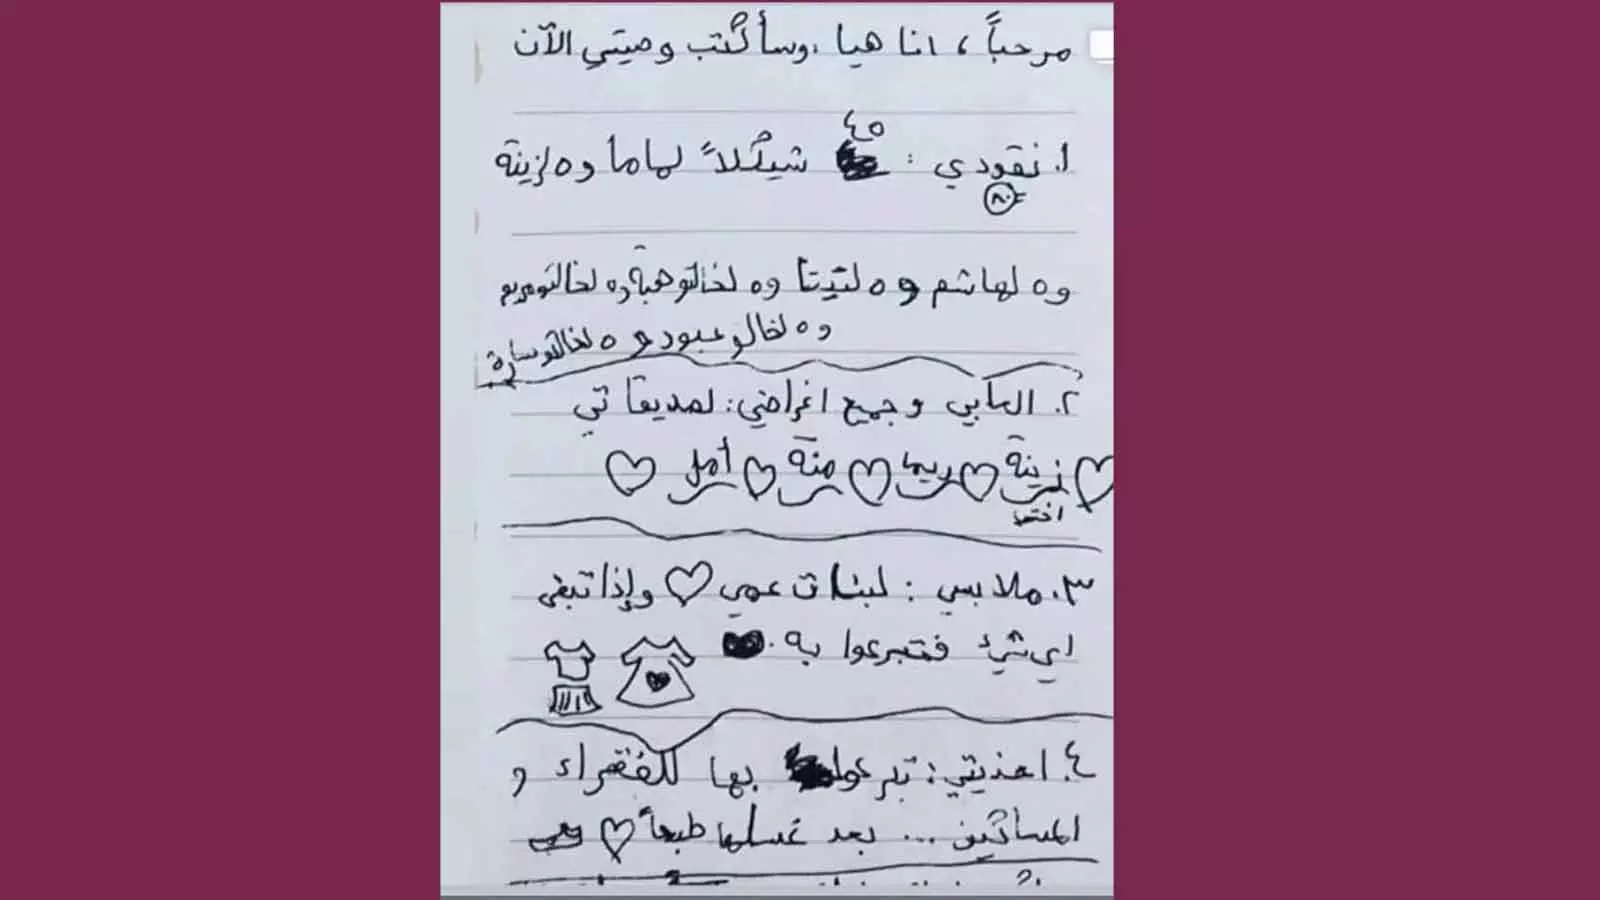 مرحباً، انا هيا، وسأكتب وصيتي الآن
٤٥
١. نقودي : شيكلاً لماما و٥ لزينة
٨٠
و٥ لهاشم و٥ لتيتا و٥ لخالتو هبة و٥ لخالتو مريم
و٥ لخالو عبود و٥ لخالتو سارة
٢. العابي وجميع اغراضي: لصديقاتي
زينة ريما منة أمل
اختي
٣. ملابسي : لبنات عمي وإذا تبقى
اي شيء فتبرعوا به.
٤. احذيتي: تبرعوا بها للفقراء و
المساكين ... بعد غسلها طبعاً